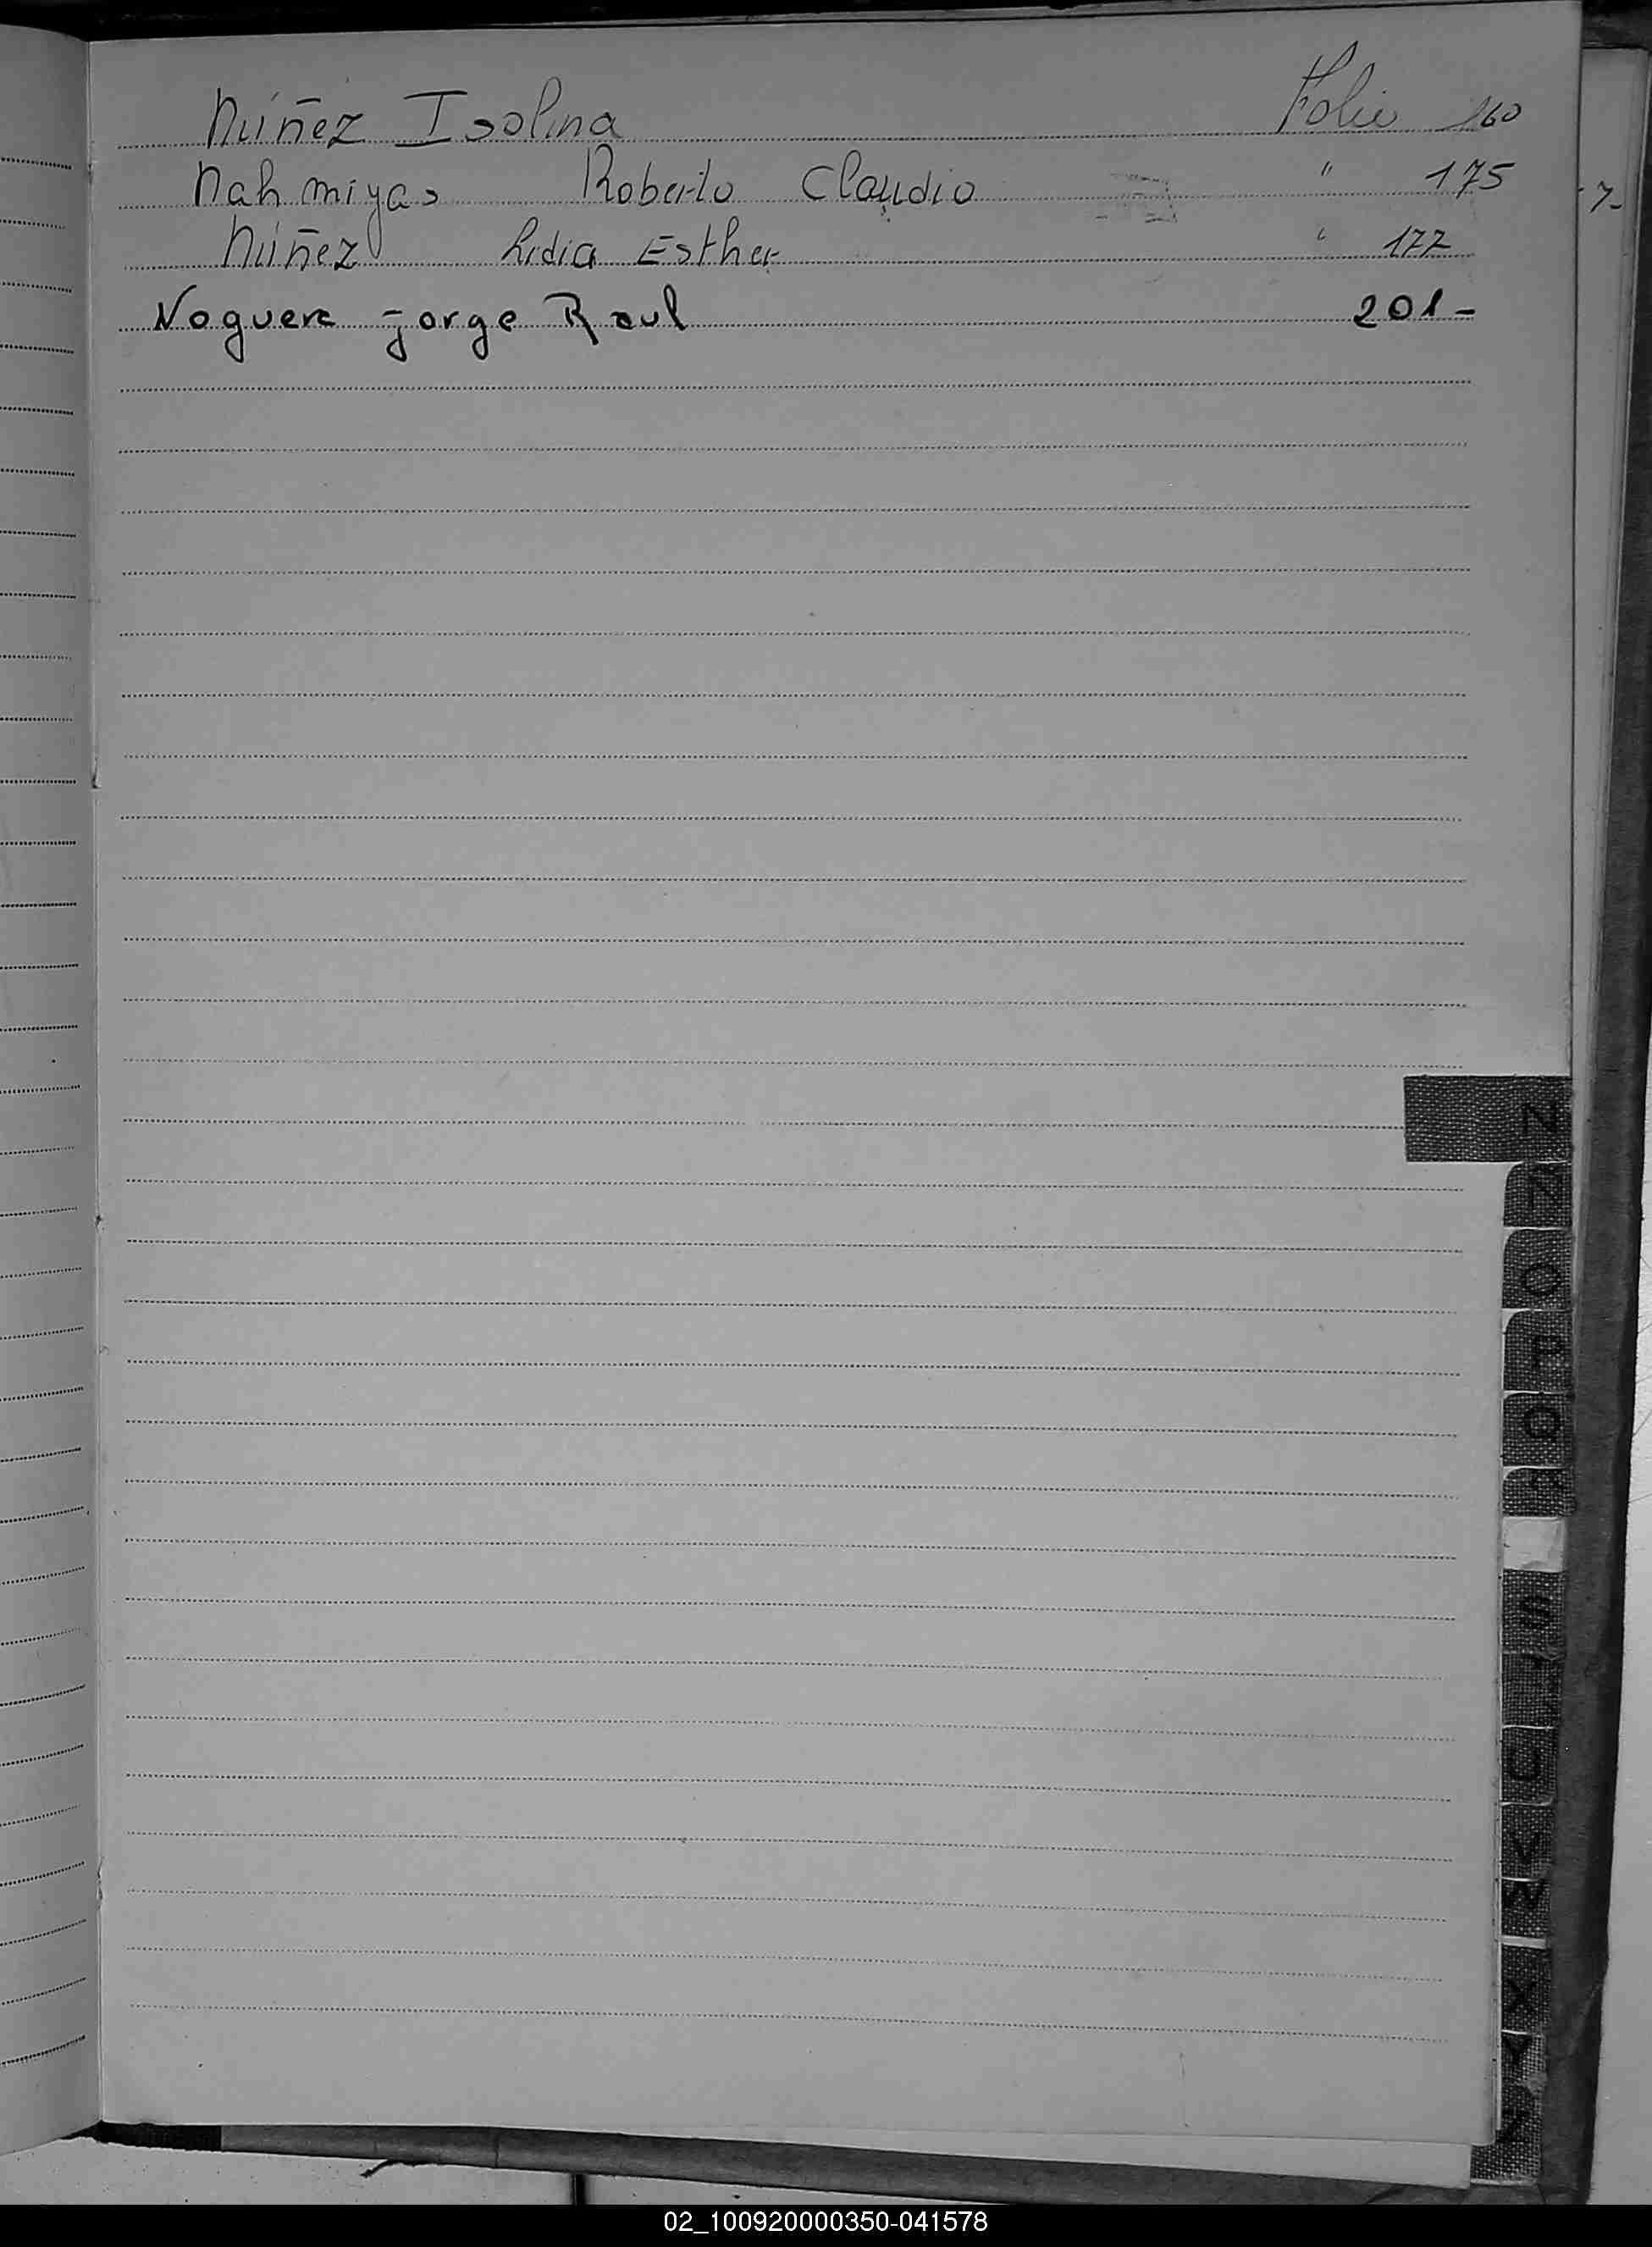 Núñez Isolina Folio 160
Nahmiyas Roberto Claudio " 175
Núñez Lidia Esther " 177
Noguera Jorge Raul 201-
7-
N
Ñ
O
P
Q
S
U
V
W
X
Y
Z
02_100920000350-041578